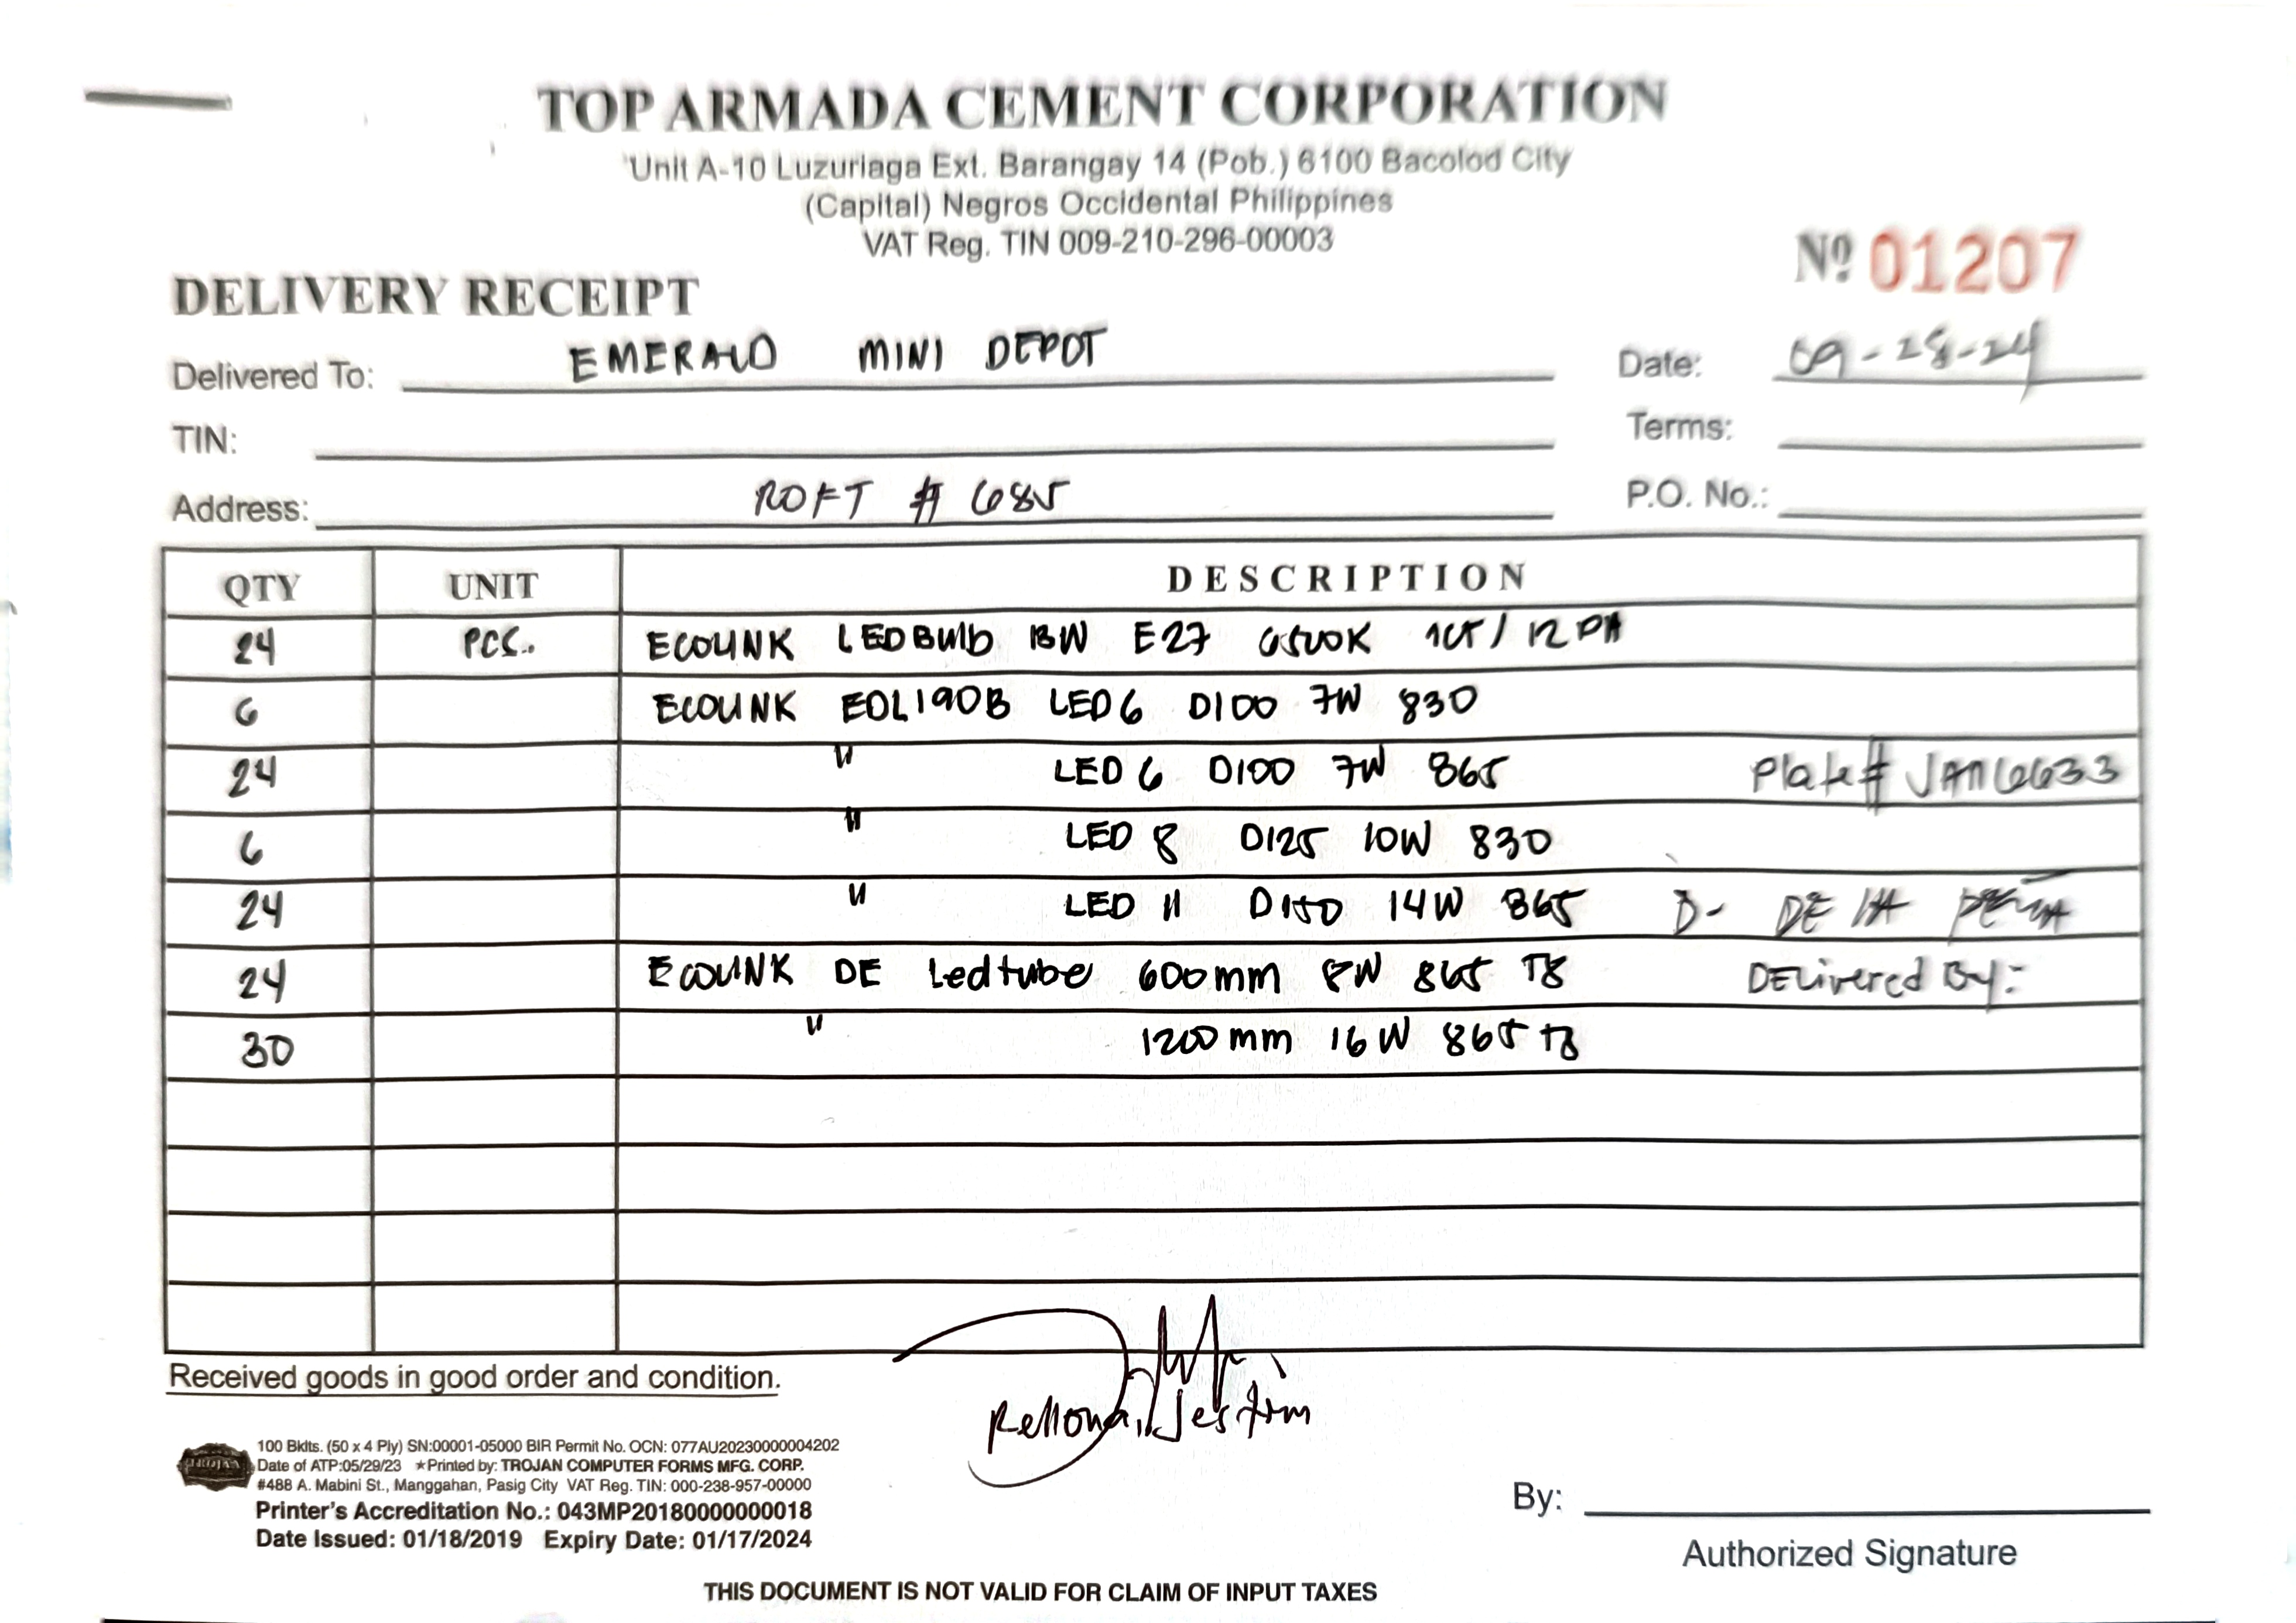 TOP ARMADA CEMENT CORPORATION
Unit A-10 Luzuriaga Ext. Barangay 14 (Pob.) 6100 Bacolod City
(Capital) Negros Occidental Philippines
VAT Reg. TIN 009-210-296-00003
Nº 01207
DELIVERY RECEIPT
Delivered To: EMERALD MINI DEPOT Date: 09-28-24
TIN: Terms:
Address: ROFT # 685 P.O. No.:
QTY UNIT DESCRIPTION
24 PCS. ECOLINK LED Bulb 13W E27 6500K 1CT/12 PH
6 ECOLINK EDL190B LED6 D100 7W 830
24 " LED 6 D100 7W 865 Plate# JAM6633
6 " LED 8 D125 10W 830
24 " LED 11 D150 14W 865 D- DE LA PEÑA
24 ECOLINK DE Led tube 600mm 8W 865 T8 DELivered By:
30 " 1200mm 16W 865 T8
Received goods in good order and condition.
TROJAN
100 Bklts. (50 x 4 Ply) SN:00001-05000 BIR Permit No. OCN: 077AU20230000004202
Date of ATP:05/29/23 ★Printed by: TROJAN COMPUTER FORMS MFG. CORP.
#488 A. Mabini St., Manggahan, Pasig City VAT Reg. TIN: 000-238-957-00000
Printer's Accreditation No.: 043MP20180000000018
Date Issued: 01/18/2019 Expiry Date: 01/17/2024
By:
Authorized Signature
THIS DOCUMENT IS NOT VALID FOR CLAIM OF INPUT TAXES